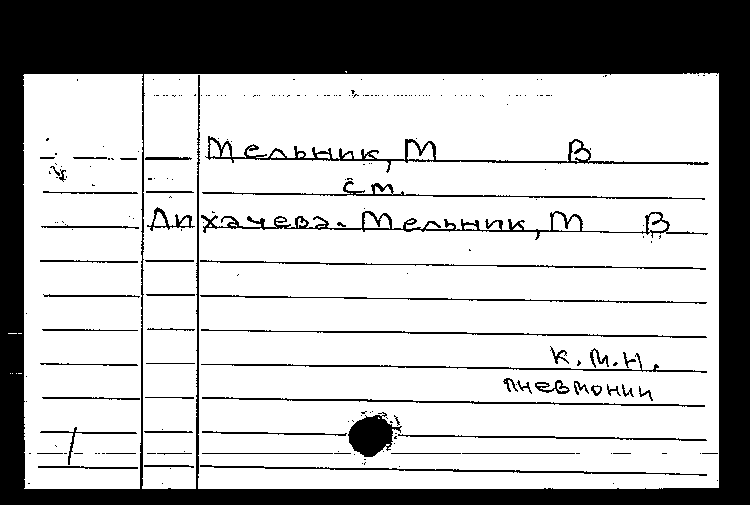 Мельник, М В
см.
Лихачева-Мельник, М В
к.м.н.
пневмонии